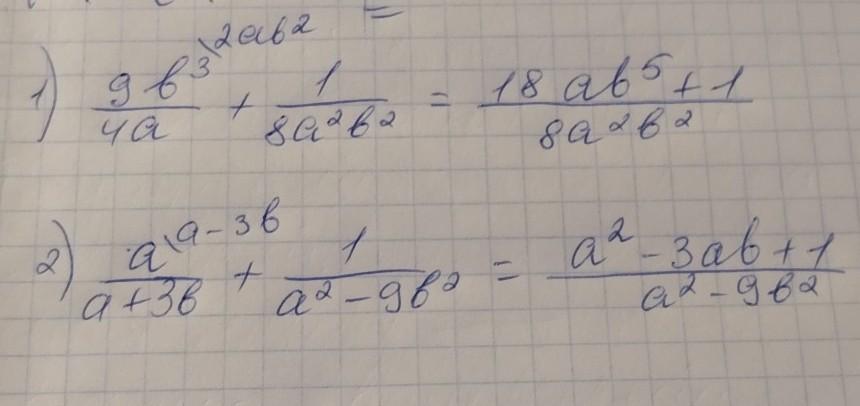 =
1) 9b³\2ab² / 4a + 1 / 8a²b² = 18ab⁵+1 / 8a²b²
2) a\a-3b / a+3b + 1 / a²-9b² = a²-3ab+1 / a²-9b²